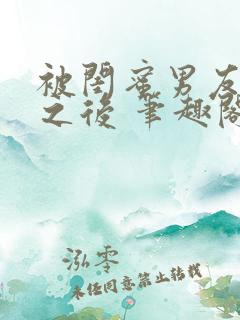 被闺蜜男友
之后 笔趣阁
泓零
未经同意禁止转载